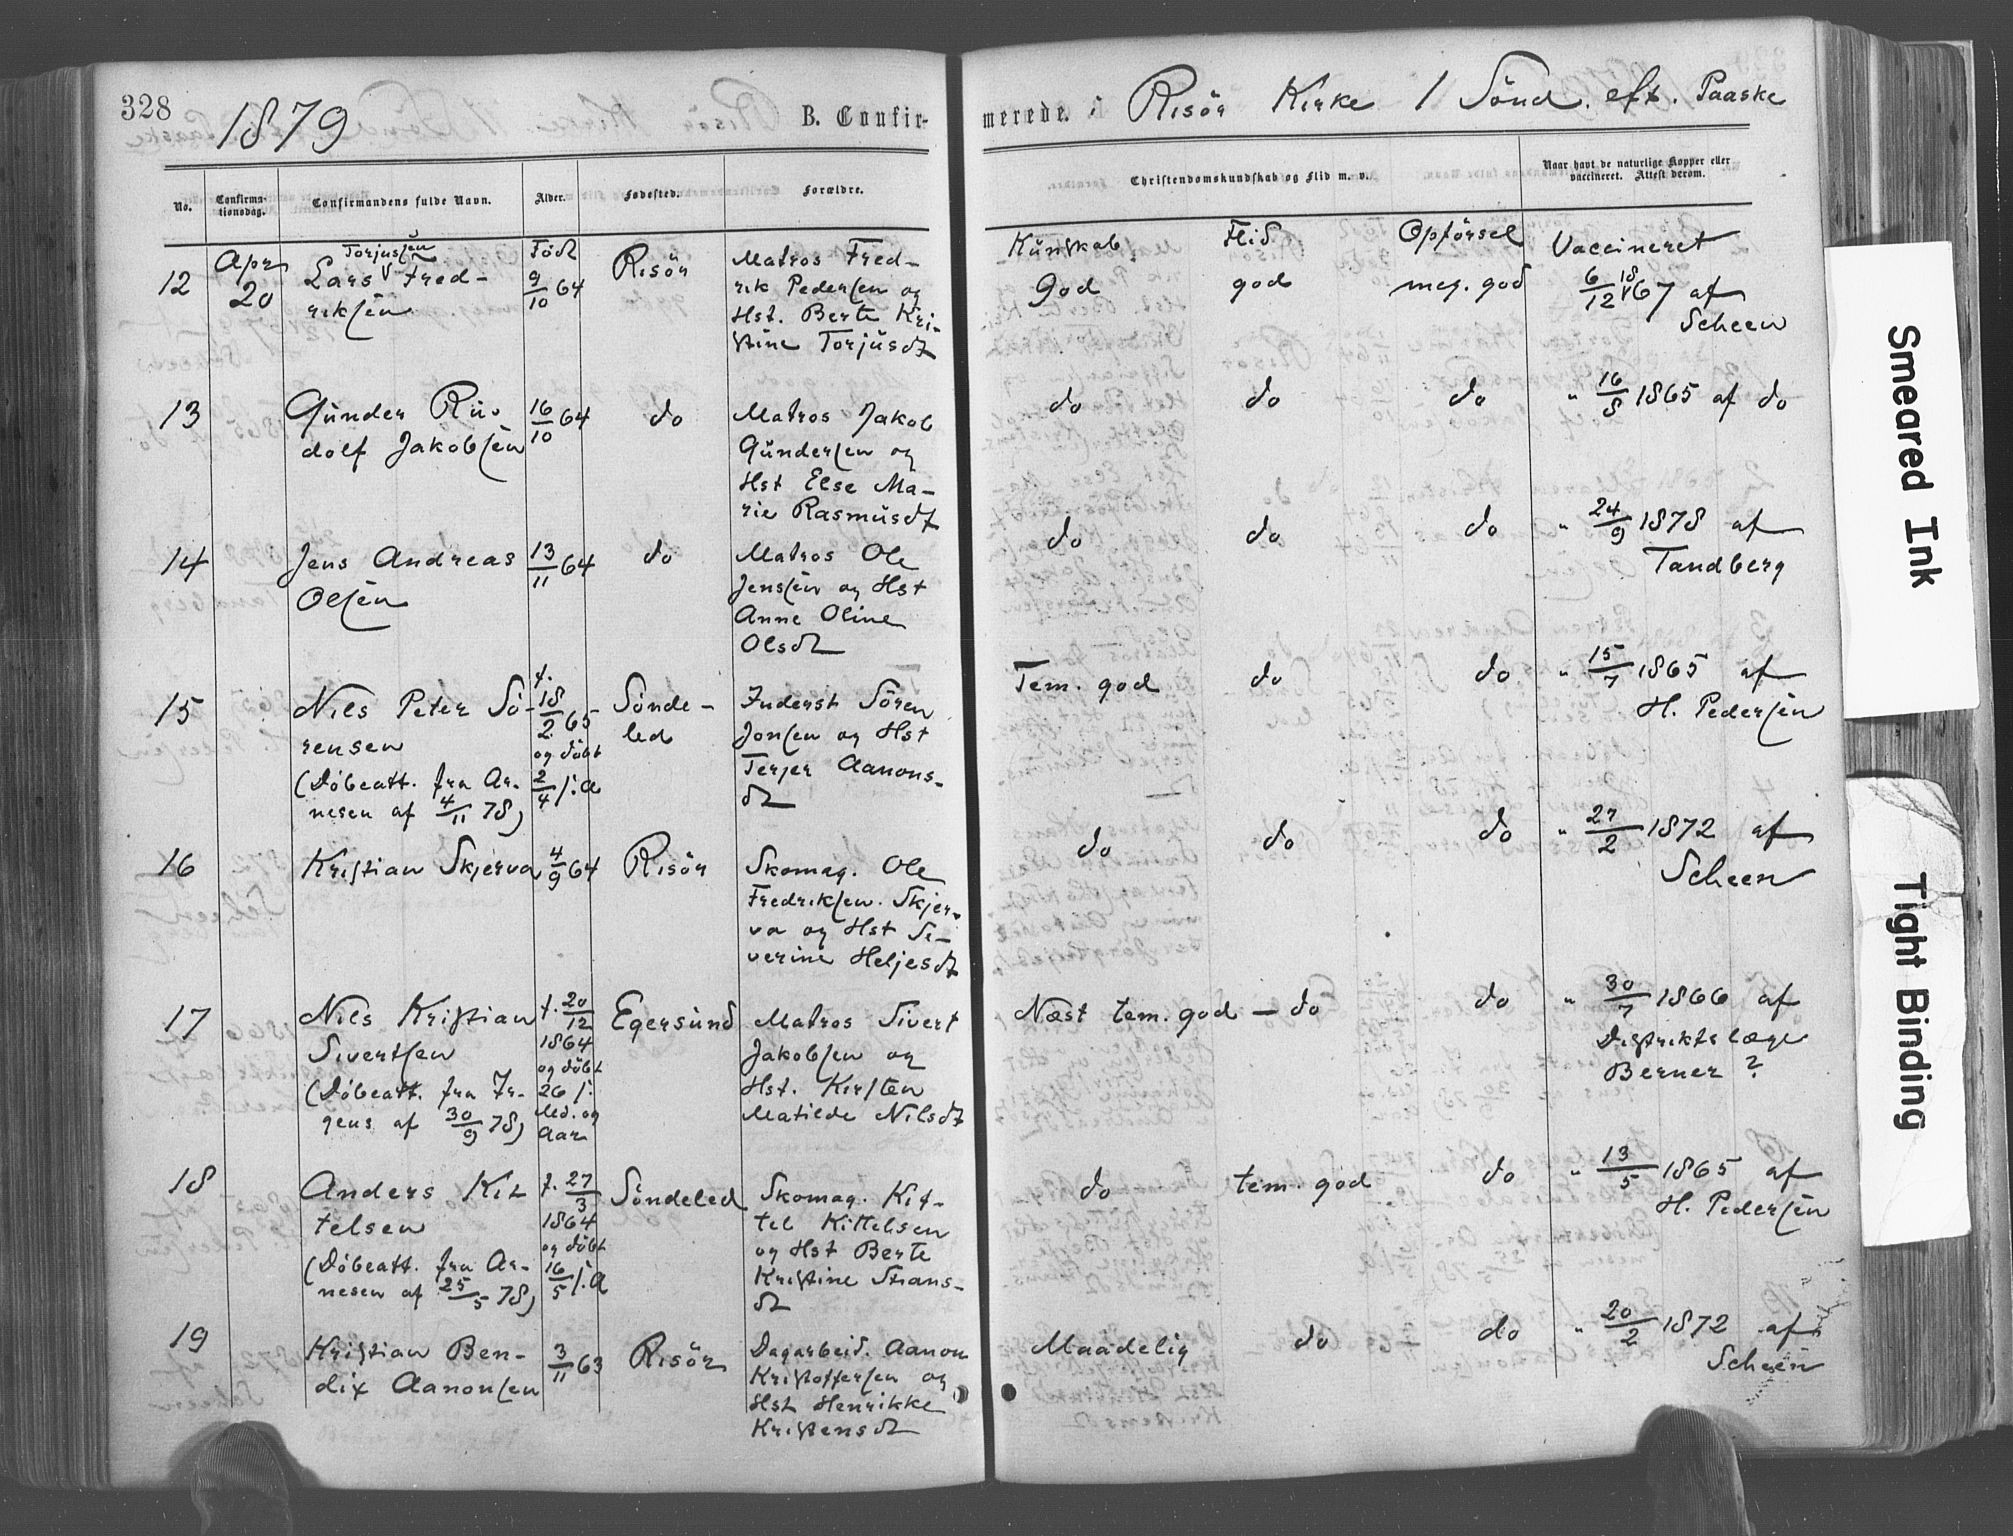 328
1879
B. Confirmerede. i Risör Kirke 1 Sönd. eft. Paaske
No.
Confirmationsdag.
Confirmandens fulde Navn.
Alder.
Fødested.
Forældre.
Christendomskundskab og Flid m. v.
Naar havt de naturlige Kopper eller
vaccineret. Attest derom.
12
Apr
20
Torjussen
Lars V Fred-
riksen
Född
9/10 64
Risör
Matros Fred-
rik Pedersen og
Hst. Berte Kri-
stine Torjusdt
Kunskab
God
Flid
god
Opförsel
meg. god
Vaccineret
6/12 18 67 af
Scheen
13
Gunder Ru-
dolf Jakobsen
16/10 64
do
Matros Jakob
Gundersen og
Hst Else Ma-
rie Rasmusdt
do
do
do
" 16/8 1865 af do
14
Jens Andreas
Olsen
13/11 64
do
Matros Ole
Jenssen og Hst
Anne Oline
Olsdt
do
do
do
" 24/9 1878 af
Tandberg
15
Nils Peter Sö-
rensen
(Döbeatt. fra Ar-
nesen af 4/11 78)
f.
18/2 65
og döbt
2/4 s. A
Sönde-
led
Inderst Sören
Jonsen og Hst
Terjer Aanons-
dt
Tem. god
do
do
" 15/7 1865 af
H. Pedersen
16
Kristian Skjerva
4/9 64
Risör
Skomag. Ole
Fredriksen Skjer-
va og Hst Se-
verine Heljesdt
do
do
do
" 27/2 1872 af
Scheen
17
Nils Kristian
Sivertsen
(Döbeatt. fra Ir-
gens af 30/9 78)
f. 20/12
1864
og döbt
26 s.
Md. og
Aar
Egersund
Matros Sivert
Jakobsen og
Hst. Kirsten
Matilde Nilsdt
Næst tem. god
do
do
" 30/7 1866 af
Distriktslæge
Berner ?
18
Anders Kit
telsen
(Döbeatt. fra Ar-
nesen af 25/5 78)
f. 27/3
1864
og döbt
16/5 s. A
Söndeled
Skomag. Kit-
tel Kittelsen
og Hst Berte
Kristine Strans-
dt
do
tem. god
do
" 13/5 1865 af
H. Pedersen
19
Kristian Ben-
dix Aanonsen
3/11 63
Risör
Dagarbeid. Aanon
Kristoffersen og
Hst Henrikke
Kristensdt
Maadelig
do
do
" 20/2 1872 af
Scheen
Smeared Ink
Tight Binding